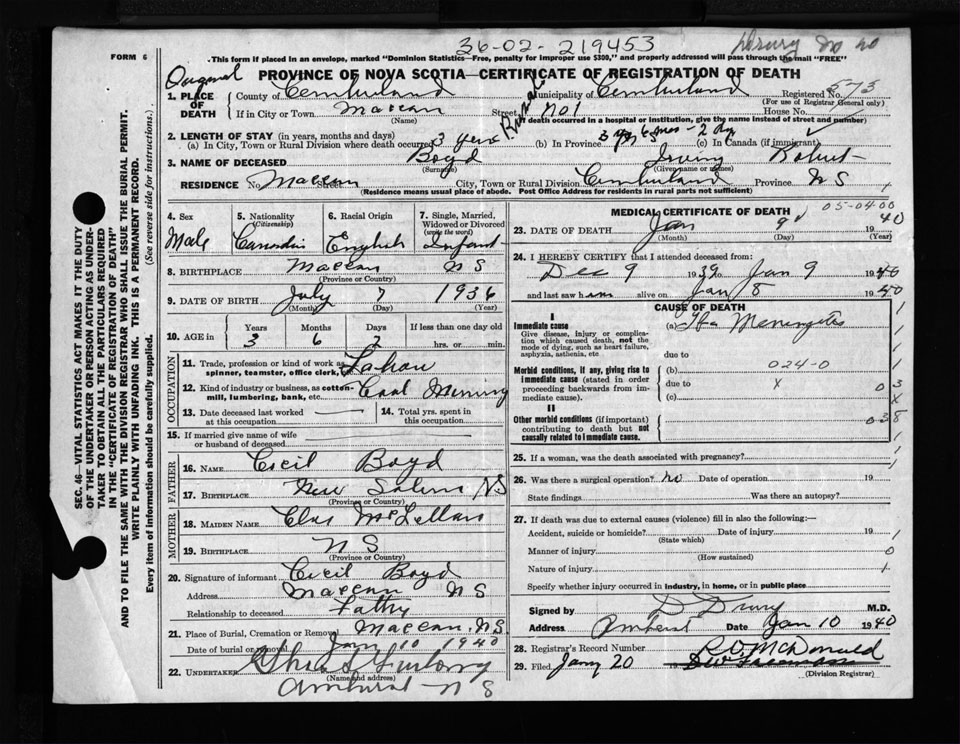 36-02-219453
Drury
FORM 6
This form if placed in an envelope, marked "Dominion Statistics—Free, penalty for improper use $300," and properly addressed will pass through the mail "FREE"
Original
PROVINCE OF NOVA SCOTIA—CERTIFICATE OF REGISTRATION OF DEATH
1. PLACE OF DEATH
County of Cumberland Municipality of Cumberland Registered No. 573
(For use of Registrar General only)
If in City or Town Maccan Street No 1 House No.
(Name) death occurred in a hospital or institution, give the name instead of street and number)
2. LENGTH OF STAY (in years, months and days)
(a) In City, Town or Rural Division where death occurred 3 years (b) In Province 3 yrs 6 mos - 2 dy (c) In Canada (if immigrant)
3. NAME OF DECEASED Boyd Irving Robert
(Surname) (Given name or names)
RESIDENCE No. Maccan Street City, Town or Rural Division Cumberland Province N S
(Residence means usual place of abode. Post Office Address for residents in rural parts not sufficient)
4. Sex 5. Nationality (Citizenship) 6. Racial Origin 7. Single, Married, Widowed or Divorced (write the word)
Male Canadin English Infant
8. BIRTHPLACE Maccan N S
(Province or Country)
9. DATE OF BIRTH July 7 1936
(Month) (Day) (Year)
10. AGE in Years Months Days If less than one day old
3 6 2 hrs. or min.
OCCUPATION
11. Trade, profession or kind of work as spinner, teamster, office clerk, etc.
12. Kind of industry or business, as cotton-mill, lumbering, bank, etc. Coal Mining
13. Date deceased last worked at this occupation
14. Total yrs. spent in this occupation
15. If married give name of wife or husband of deceased
FATHER
16. NAME Cecil Boyd
17. BIRTHPLACE New Salem NS
(Province or Country)
MOTHER
18. MAIDEN NAME McLellan
19. BIRTHPLACE N S
(Province or Country)
20. Signature of informant Cecil Boyd
Address Maccan N S
Relationship to deceased Father
21. Place of Burial, Cremation or Removal Maccan, N.S.
Date of burial or removal Jany 10 1940
22. UNDERTAKER Chas S Furlong
(Name and address)
Amherst N S
MEDICAL CERTIFICATE OF DEATH 05-04-00
23. DATE OF DEATH Jan 9 1940
(Month) (Day) (Year)
24. I HEREBY CERTIFY that I attended deceased from:
Dec 9 1939 to Jan 9 1940
and last saw him alive on Jan 8 1940
CAUSE OF DEATH
I
Immediate cause (a) Tbc Meningitis
Give disease, injury or complication which caused death, not the mode of dying, such as heart failure, asphyxia, asthenia, etc
due to
Morbid conditions, if any, giving rise to immediate cause (stated in order proceeding backwards from immediate cause).
(b) 024-0
due to X
(c)
II
Other morbid conditions (if important) contributing to death but not causally related to immediate cause.
25. If a woman, was the death associated with pregnancy?
26. Was there a surgical operation? no Date of operation 19
State findings Was there an autopsy?
27. If death was due to external causes (violence) fill in also the following:—
Accident, suicide or homicide? Date of injury 19
(State which)
Manner of injury
(How sustained)
Nature of injury
Specify whether injury occurred in industry, in home, or in public place
Signed by D Drury M.D.
Address Amherst Date Jan 10 1940
28. Registrar's Record Number
R D McDonald
29. Filed Jany 20
(Division Registrar)
SEC. 46—VITAL STATISTICS ACT MAKES IT THE DUTY
OF THE UNDERTAKER OR PERSON ACTING AS UNDER-
TAKER TO OBTAIN ALL THE PARTICULARS REQUIRED
IN THE "CERTIFICATE OF REGISTRATION OF DEATH"
AND TO FILE THE SAME WITH THE DIVISION REGISTRAR WHO SHALL ISSUE THE BURIAL PERMIT.
WRITE PLAINLY WITH UNFADING INK. THIS IS A PERMANENT RECORD.
Every item of information should be carefully supplied. (See reverse side for instructions.)